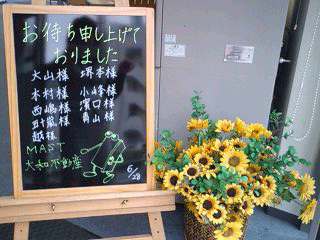 お待ち申し上げて
おりました
大山様 堺本様
木村様 小峰様
西嶋様 濱口様
五十嵐様 青山様
越様
MAST
大和不動産
6/28